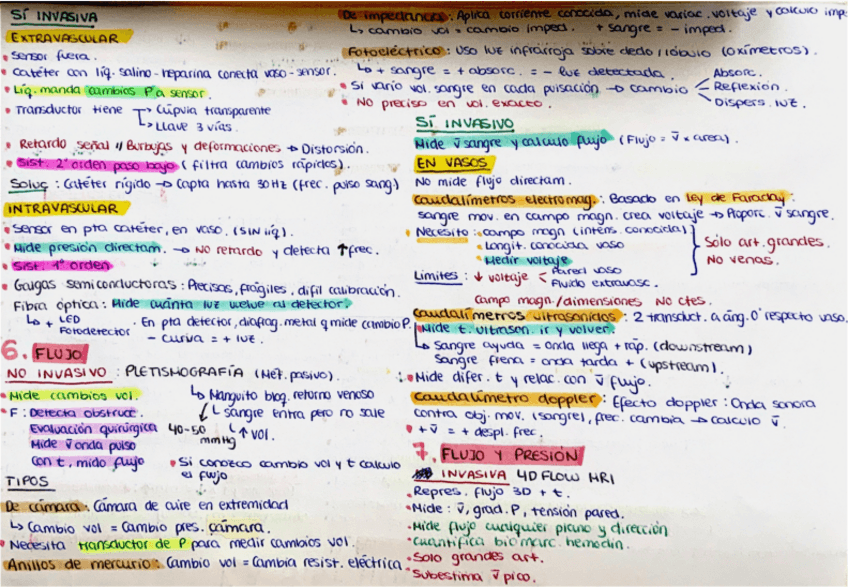 SÍ INVASIVA
EXTRAVASCULAR
• Sensor fuera.
• Catéter con líq. salino-heparina conecta vaso-sensor.
• Líq. manda cambios P a sensor.
• Transductor tiene → Cúpula transparente
↳ Llave 3 vías.
• Retardo señal // Burbujas y deformaciones → Distorsión.
• Sist. 2º orden paso bajo (filtra cambios rápidos).
Soluc: Catéter rígido → Capta hasta 30Hz (frec. pulso sang)
INTRAVASCULAR
• Sensor en pta catéter, en vaso. (SIN líq.)
• Mide presión directam. → NO retardo y detecta ↑ frec.
• Sist. 1º orden
• Galgas semiconductoras: Precisas, frágiles, difil calibración.
Fibra óptica: Mide cuánta luz vuelve al detector.
↳ + LED Fotodetector · En pta detector, diafrag. metal q mide cambio P.
- Curva = + luz.
6. FLUJO
NO INVASIVO: PLETISMOGRAFÍA (Met. pasivo).
• Mide cambios vol.
↳ Manguito bloq. retorno venoso
• F: Detecta obstrucc.
↳ sangre entra pero no sale
Evaluación quirúrgica
40-50 mmHg
↳ ↑ vol.
Mide v̄ onda pulso
Con t, mido flujo
• Si conozco cambio vol y t calculo el flujo
TIPOS
De cámara: Cámara de aire en extremidad
↳ Cambio vol = Cambio pres. cámara.
• Necesita transductor de P para medir cambios vol.
Anillos de mercurio: Cambio vol = Cambia resist. eléctrica
De impedancias: Aplica corriente conocida, mide variac. voltaje y calculo impe
↳ cambio vol = cambio imped. + sangre = - imped.
Fotoeléctrico: Uso luz infrarroja sobre dedo / lóbulo (oxímetros).
↳ + sangre = + absorc. = - luz detectada.
• Si varío vol. sangre en cada pulsación → cambio
Absorc.
Reflexión.
Dispers. luz.
• NO preciso en vol. exacto.
SÍ INVASIVO
Mide v̄ sangre y calculo flujo (Flujo = v̄ × area).
EN VASOS
No mide flujo directam.
Caudalímetros electromag.: Basado en ley de Faraday:
sangre mov. en campo magn. crea voltaje → Proporc. v̄ sangre.
• Necesito: campo magn (intens. conocida)
Longit. conocida vaso
Medir voltaje
Sólo art. grandes.
No venas.
Límites: ↓ voltaje
Pared vaso
Fluido extravasc.
Campo magn./dimensiones NO ctes.
Caudalímetros ultrasonidos: 2 transduct. a áng. 0º respecto vaso.
• Mide t. ultrason. ir y volver.
↳ Sangre ayuda = onda llega + ráp. (downstream)
Sangre frena = onda tarda + (upstream).
• Mide difer. t y relac. con v̄ flujo.
Caudalímetro doppler: Efecto doppler: Onda sonora
contra obj. mov. (sangre), frec. cambia → calculo v̄.
• + v̄ = + despl. frec.
7. FLUJO Y PRESIÓN
INVASIVA 4D FLOW MRI
• Repres. flujo 3D + t.
• Mide: v̄, grad. P, tensión pared.
• Mide flujo cualquier plano y dirección
• Cuantifica biomarc. hemodin.
• Solo grandes art.
• Subestima v̄ pico.